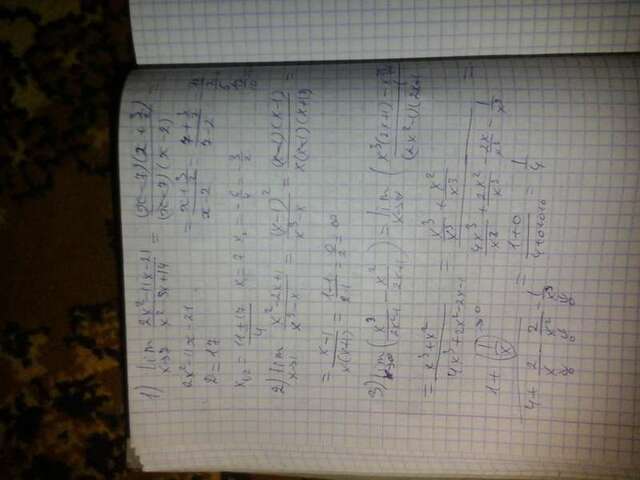 1) lim x→7 (2x²-11x-21)/(x²-9x+14) = ((x-7)(x+3/2))/((x-7)(x-2)) =
2x²-11x-21 = (x+3/2)/(x-2) = (7+3/2)/(7-2)
D=17
x₁,₂ = (11±17)/4 x₁=7 x₂=-6/4=-3/2
2) lim x→1 (x²-2x+1)/(x³-x) = (x-1)²/(x³-x) = ((x-1)(x-1))/(x(x-1)(x+1)) =
= (x-1)/(x(x+1)) = (1-1)/(2·1) = 0/2 = ∞
3) lim x→∞ (x³/(2x²-1) - x²/(2x+1)) = lim x→∞ (x³(2x+1)-
(2x²-1)(2x+1)
= (x³+x²)/(4x³+2x²-2x-1) = (x³/x³ + x²/x³)/(4x³/x³ + 2x²/x³ - 2x/x³ - 1/x³) =
(1+1/x)/(4+2/x-2/x²-1/x³) = (1+0)/(4+0+0+0) = 1/4